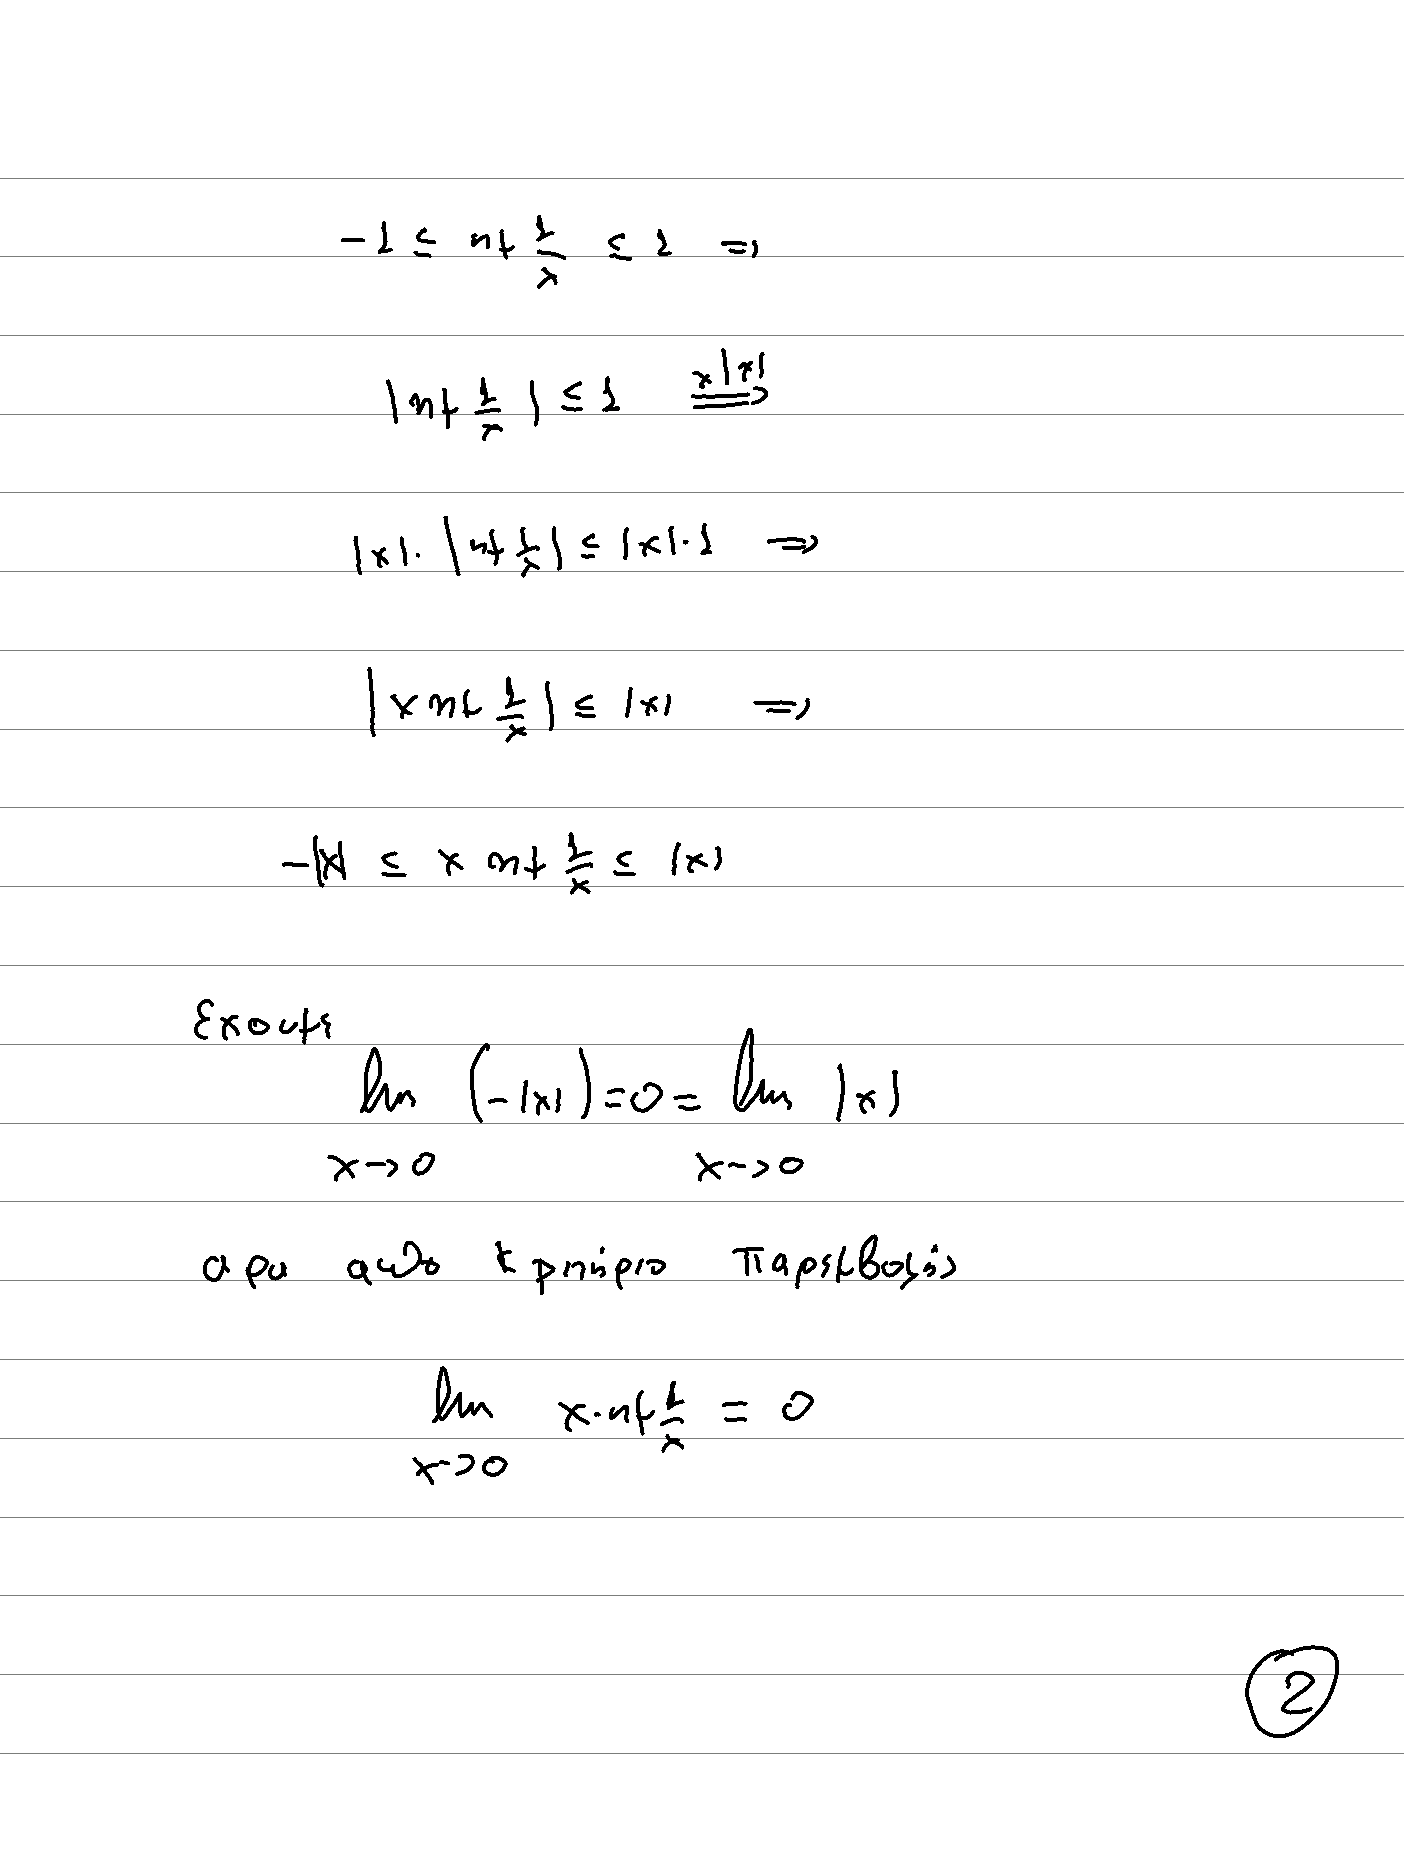 -1 ≤ ημ 1/x ≤ 1 ⇒
|ημ 1/x| ≤ 1 x|x| ⇒
|x|·|ημ 1/x| ≤ |x|·1 ⇒
|x ημ 1/x| ≤ |x| ⇒
-|x| ≤ x ημ 1/x ≤ |x|
Εχουμε
lim (-|x|) = 0 = lim |x|
x→0 x→0
αρα απο κριτήριο Παρεμβολής
lim x·ημ 1/x = 0
x→0
2